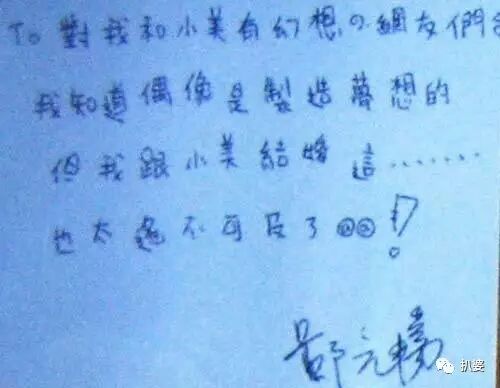 To 對我和小美有幻想の網友們。
我知道偶像是製造夢想的
但我跟小美結婚 這.......
也太遙不可及了@@!?
鄭元暢
扒婆